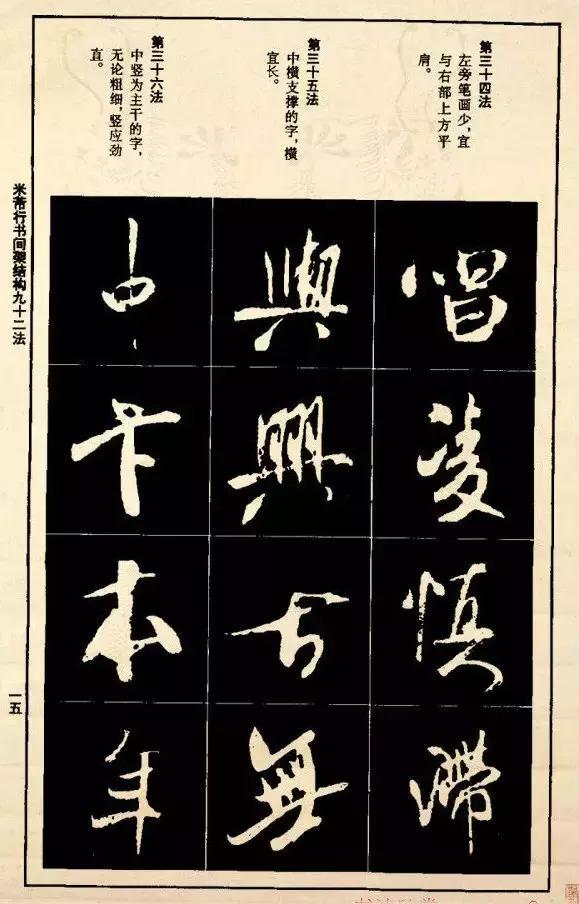 第三十四法
左旁笔画少，宜
与右部上方平
肩。
唱凌慎滯
第三十五法
中横支撑的字，横
宜长。
與興古無
第三十六法
中竖为主干的字，
无论粗细，竖应劲
直。
中卞本年
米芾行书间架结构九十二法
一五